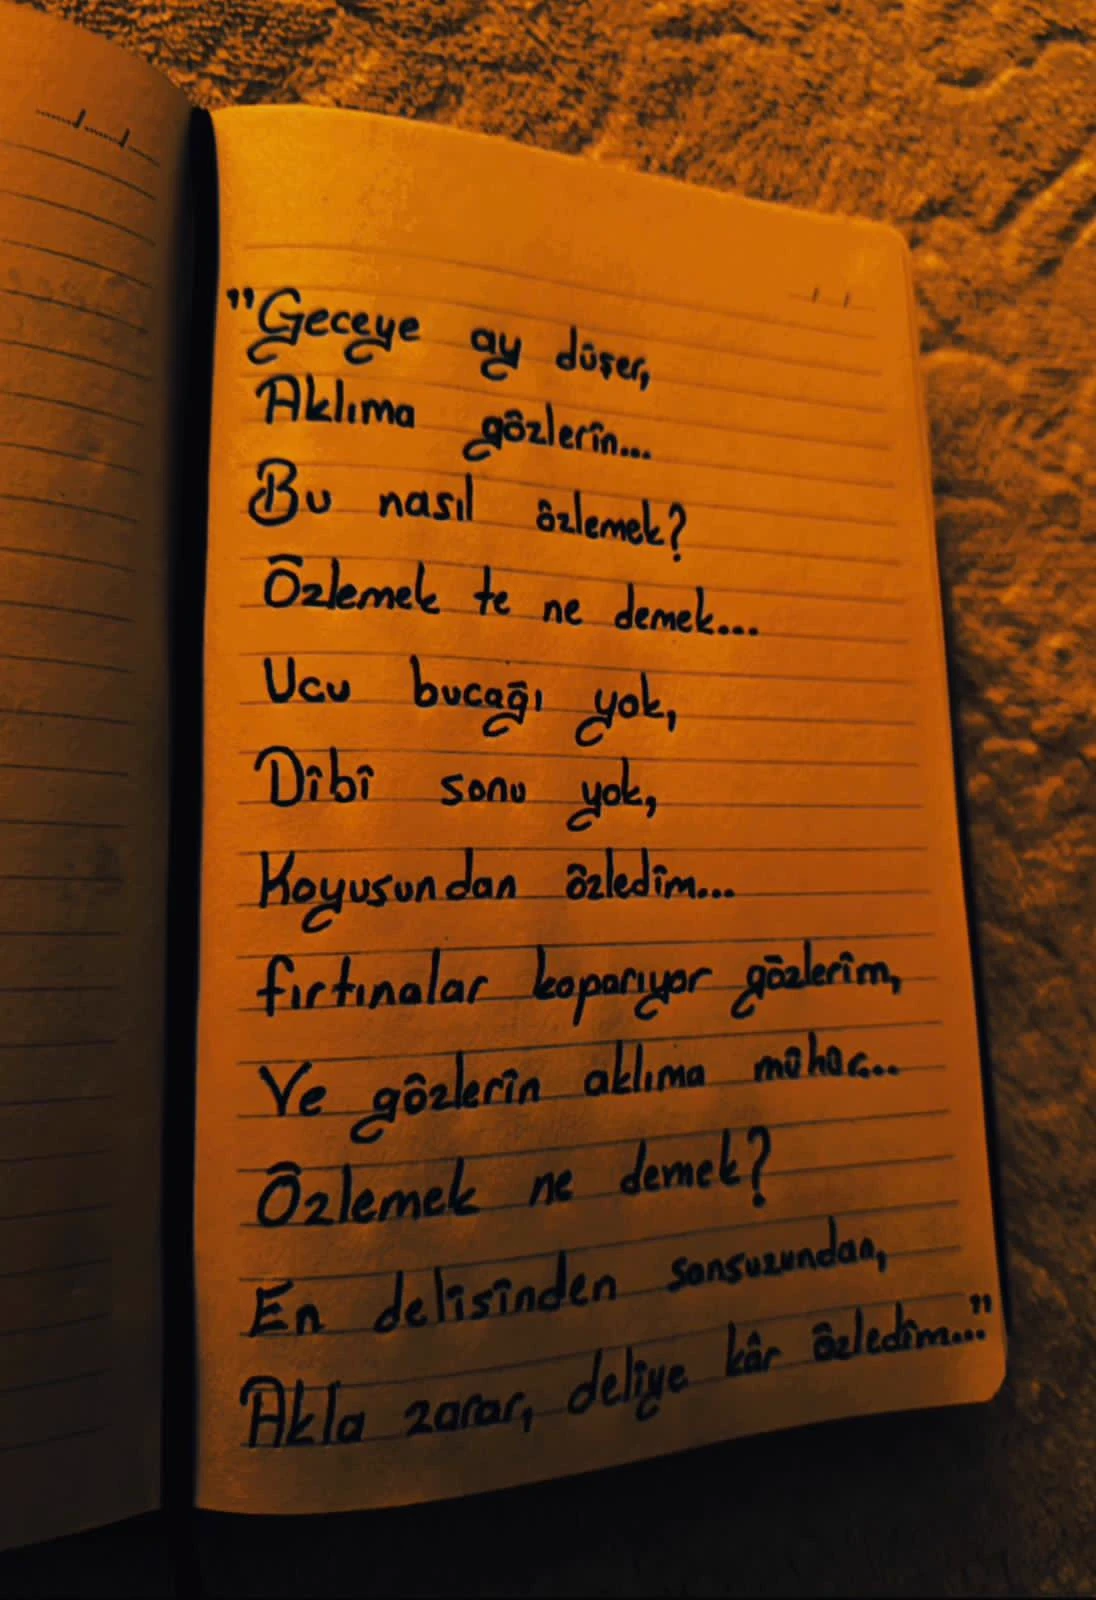 "Geceye ay düşer,
Aklıma gözlerin...
Bu nasıl özlemek?
Özlemek te ne demek...
Ucu bucağı yok,
Dibi sonu yok,
Koyusundan özledim...
fırtınalar koparıyor gözlerim,
Ve gözlerin aklıma mühür...
Özlemek ne demek?
En delisinden sonsuzundan,
Akla zarar, deliye kâr özledim..."